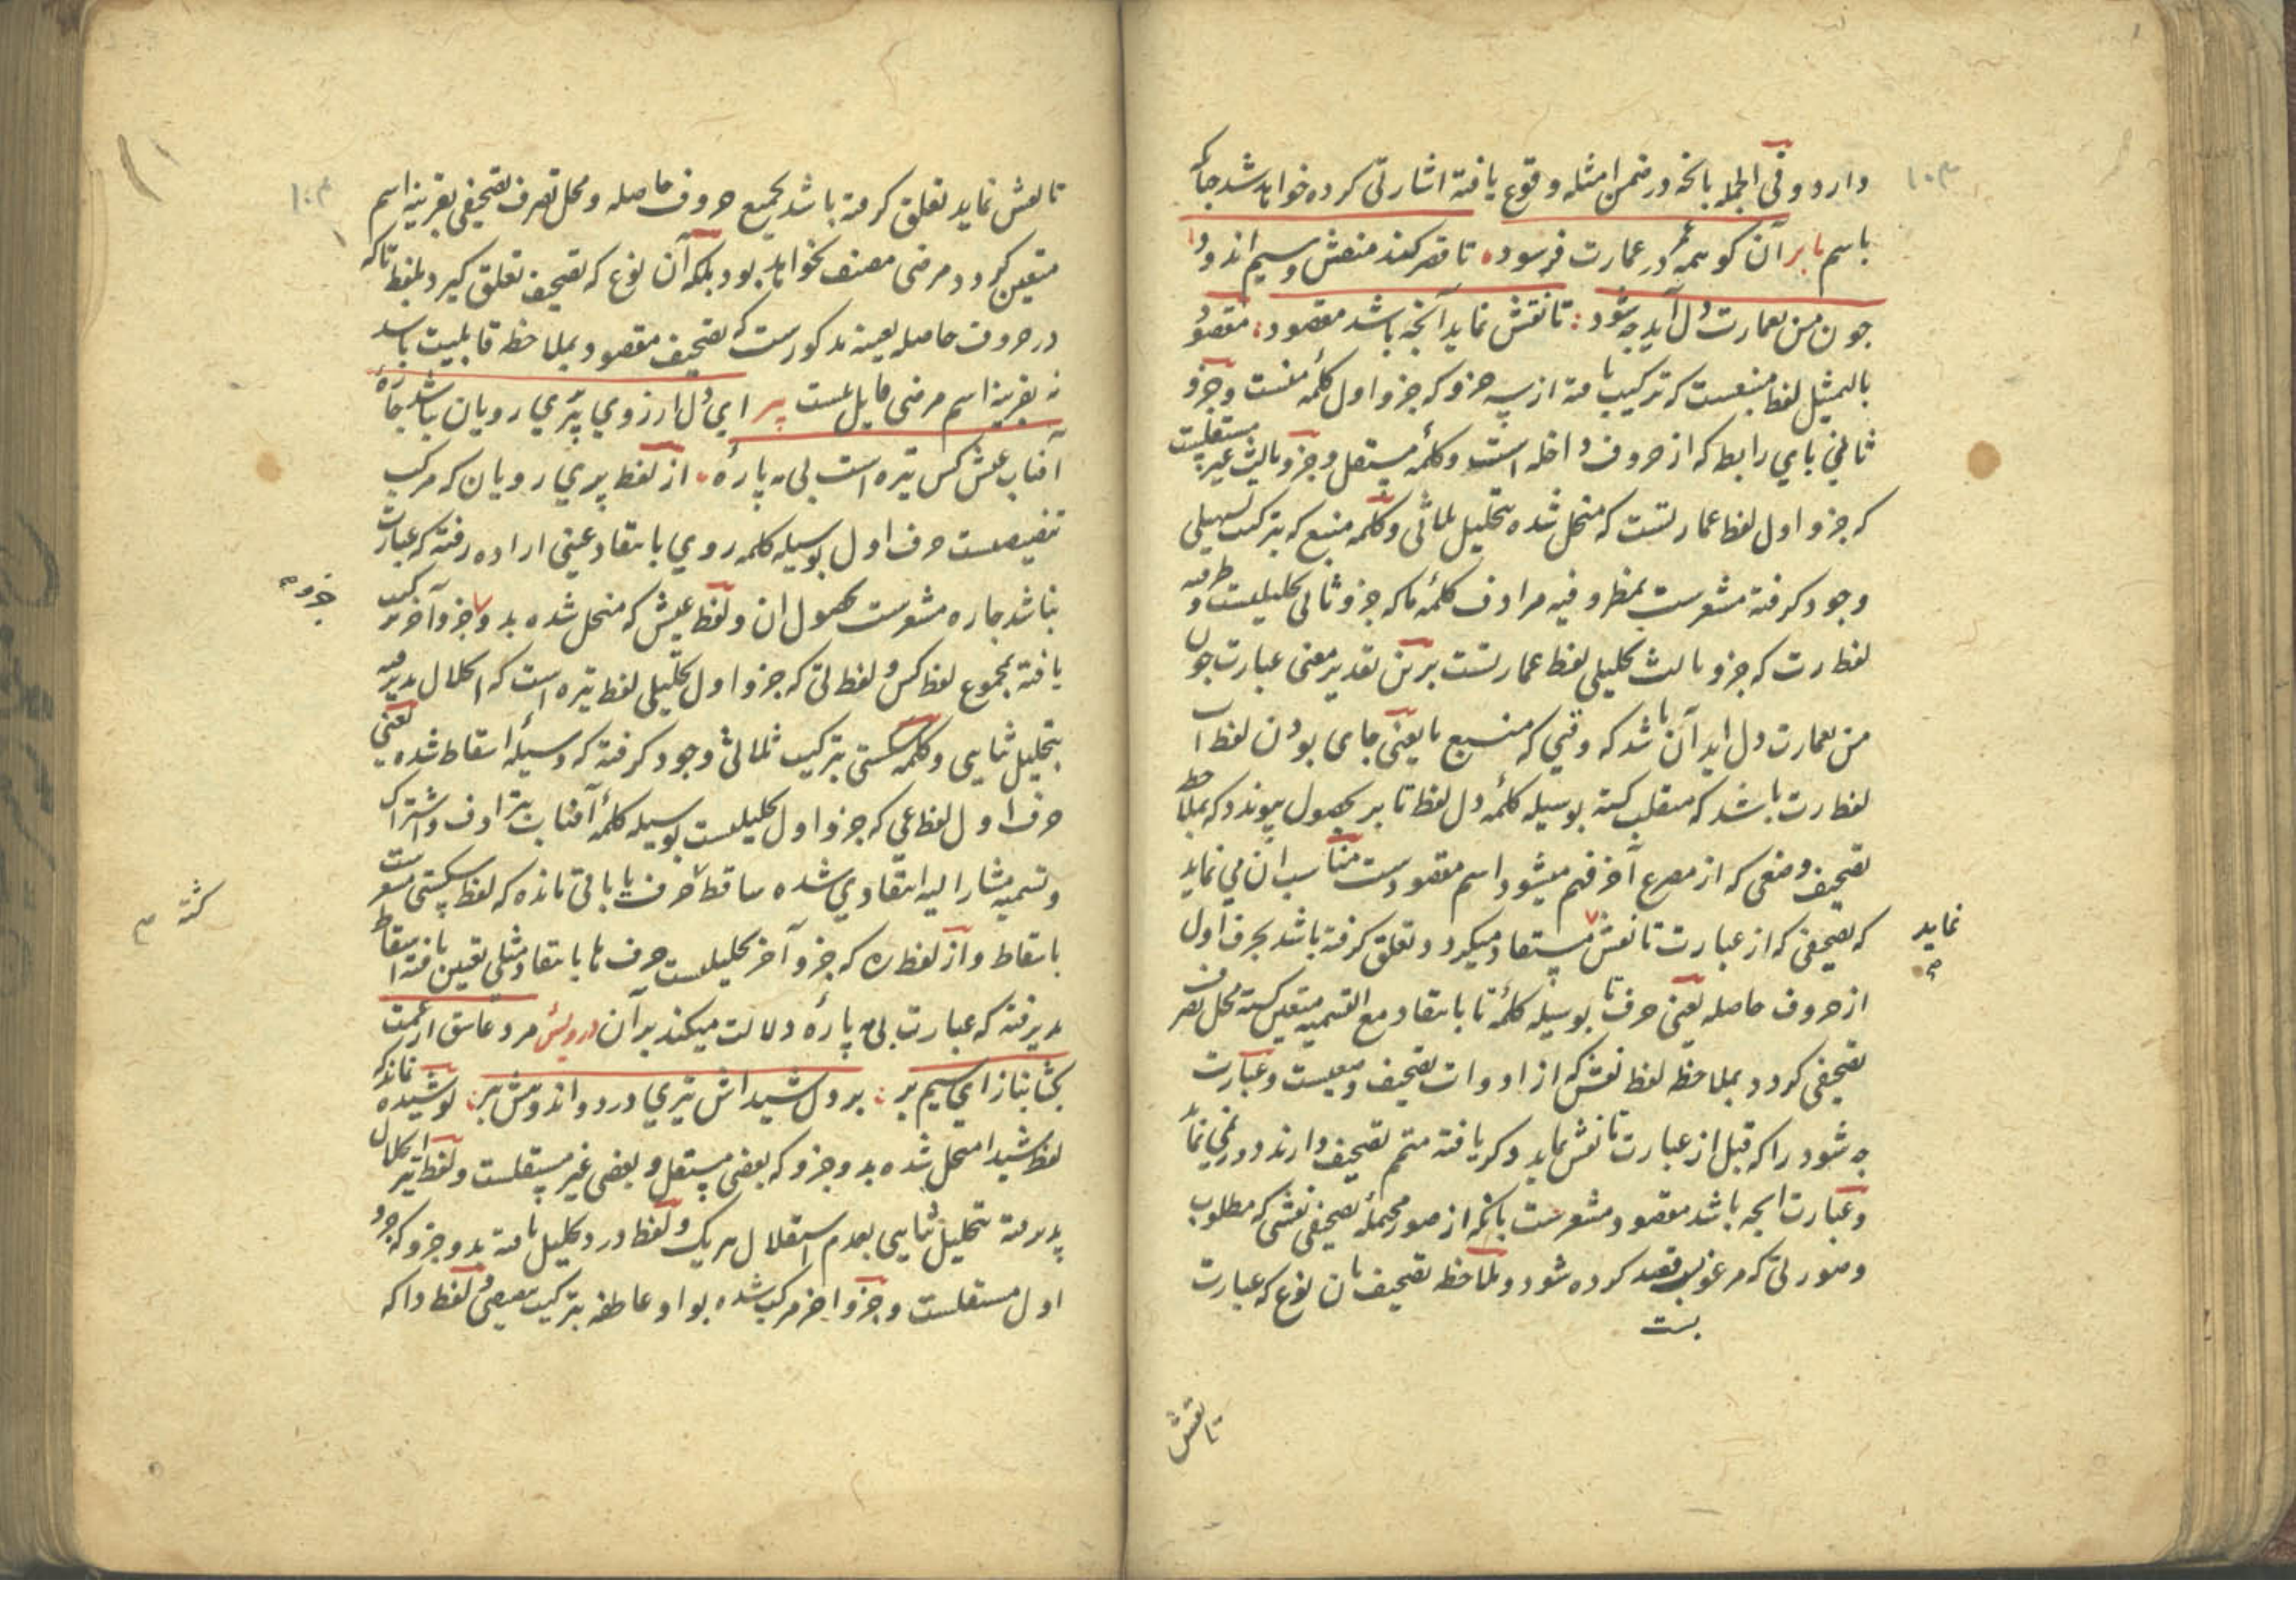 دارد و فی الجمله بانچه در ضمن امثله وقوع یافته اشارتی کرده خواهد شد چنانکه
باسم بابر آن کو همه در عمارت فرسوده تا قصر کند منقش و سیم اندود
چون من بعمارت دل آید به شود تا نقش نماید آنچه باشد مقصود مقصود
بالتمثیل لفظ منبعست که ترکیب یافته از سه جزو که جزو اول کلمه منست و جزو
ثانی بای رابط که از حروف داخله است و کلمه مستقل و جزو ثالث غیر مستقلست
که جزو اول لفظ عمارتست که منحل شده بتحلیل ثلاثی و کلمه منبع که بترکیب تسهیلی
وجود گرفته مشعرست بمظروفیه مرادف کلمه ما که جزو ثانی تحلیلیست و ظرفیه
لفظ رت که جزو ثالث تحلیلی لفظ عمارتست برین تقدیر معنی عبارت چون
من بعمارت دل آید آن باشد که وقتی که منبع ما یعنی جای بودن لفظ ا
لفظ رت باشد که منقلب گشته بوسیله کلمه دل لفظ تا بر بحصول پیوندد که بملاحظه
تصحیف وضعی که از مصرع آخر فهم میشود اسم مقصودست مناسب آن می نماید
که تصحیفی که از عبارت تا نقش مستفاد میگردد تعلق گرفته باشد بحرف اول
نماید
از حروف حاصله یعنی حرف تا بوسیله کلمه تا بانتقاد مع التسمیه متعین گشته محل تصرف
تصحیفی گردد بملاحظه لفظ نقش که از ادوات تصحیف وضعیست و عبارت
به شود را که قبل از عبارت تا نقش نماید ذکر یافته متمم تصحیف دارند دور نمی نماید
و عبارت آنچه باشد مقصود مشعرست بانکه از صور محتمله تصحیفی نقشی که مطلوب
و صورتی که مرغوبس قصد کرده شود و ملاحظه تصحیف بان نوع که عبارت
بست
تا نقش
تا نقش نماید تعلق گرفته باشد بجمیع حروف حاصله و محل تصرف تصحیفی بقرینه اسم
متعین گردد مرضی مصنف نخواهد بود بلکه آن نوع که تصحیف تعلق گیرد بلفظ تا که
در حروف حاصله بعینه مذکورست که تصحیف مقصود بملاحظه قابلیت باشد
نه بقرینه اسم مرضی قایل نیست پیر ای دل ارزوی پری رویان باشد چاره
آفتاب عشق کس تیره است بی مه پاره از لفظ پری رویان که مرکب
تنقیصیست حرف اول بوسیله کلمه روی بانتقاد عینی اراده رفته که عبارت
نباشد چاره مشعرست بحصول ان و لفظ عیش که منحل شده بدو جزو آخر ترکیب
جزو
یافته بمجموع لفظ کس و لفظ تی که جزو اول تحلیلی لفظ تیره است که انحلال پذیرفته
بتحلیل ثنایی و کلمه شکستی بترکیب ثلاثی وجود گرفته که وسیله اسقاط شده یعنی
حرف اول لفظ عی که جزو اول تحلیلیست بوسیله کلمه آفتاب بترادف و اشتراک
و تسمیه مشار الیه انتقادی شده ساقط حرف یا باقی مانده که لفظ شکستی مشعرست
گشته
باسقاط و از لفظ ره که جزو آخر تحلیلیست حرف ها بانتقاد مثلی تعیین یافته اسقاط
پذیرفته که عبارت بی مه پاره دلالت میکند بران درویش مرد عاشق از غمت
بجشا بناز ای سیم بر بر دل شیدا ش تیری درد و اندوهش ببر پوشیده نماند که
لفظ شیدا منحل شده بدو جزو که بعضی مستقل و بعضی غیر مستقلست و لفظ تیر انحلال
پذیرفته بتحلیل ثنایی بعدم استقلال هر یک و لفظ درد تحلیل یافته بدو جزو که جزو
اول مستقلست و جزو اخر مرکب شده بواو عاطفه بترکیب تنقیصی و لفظ دا که